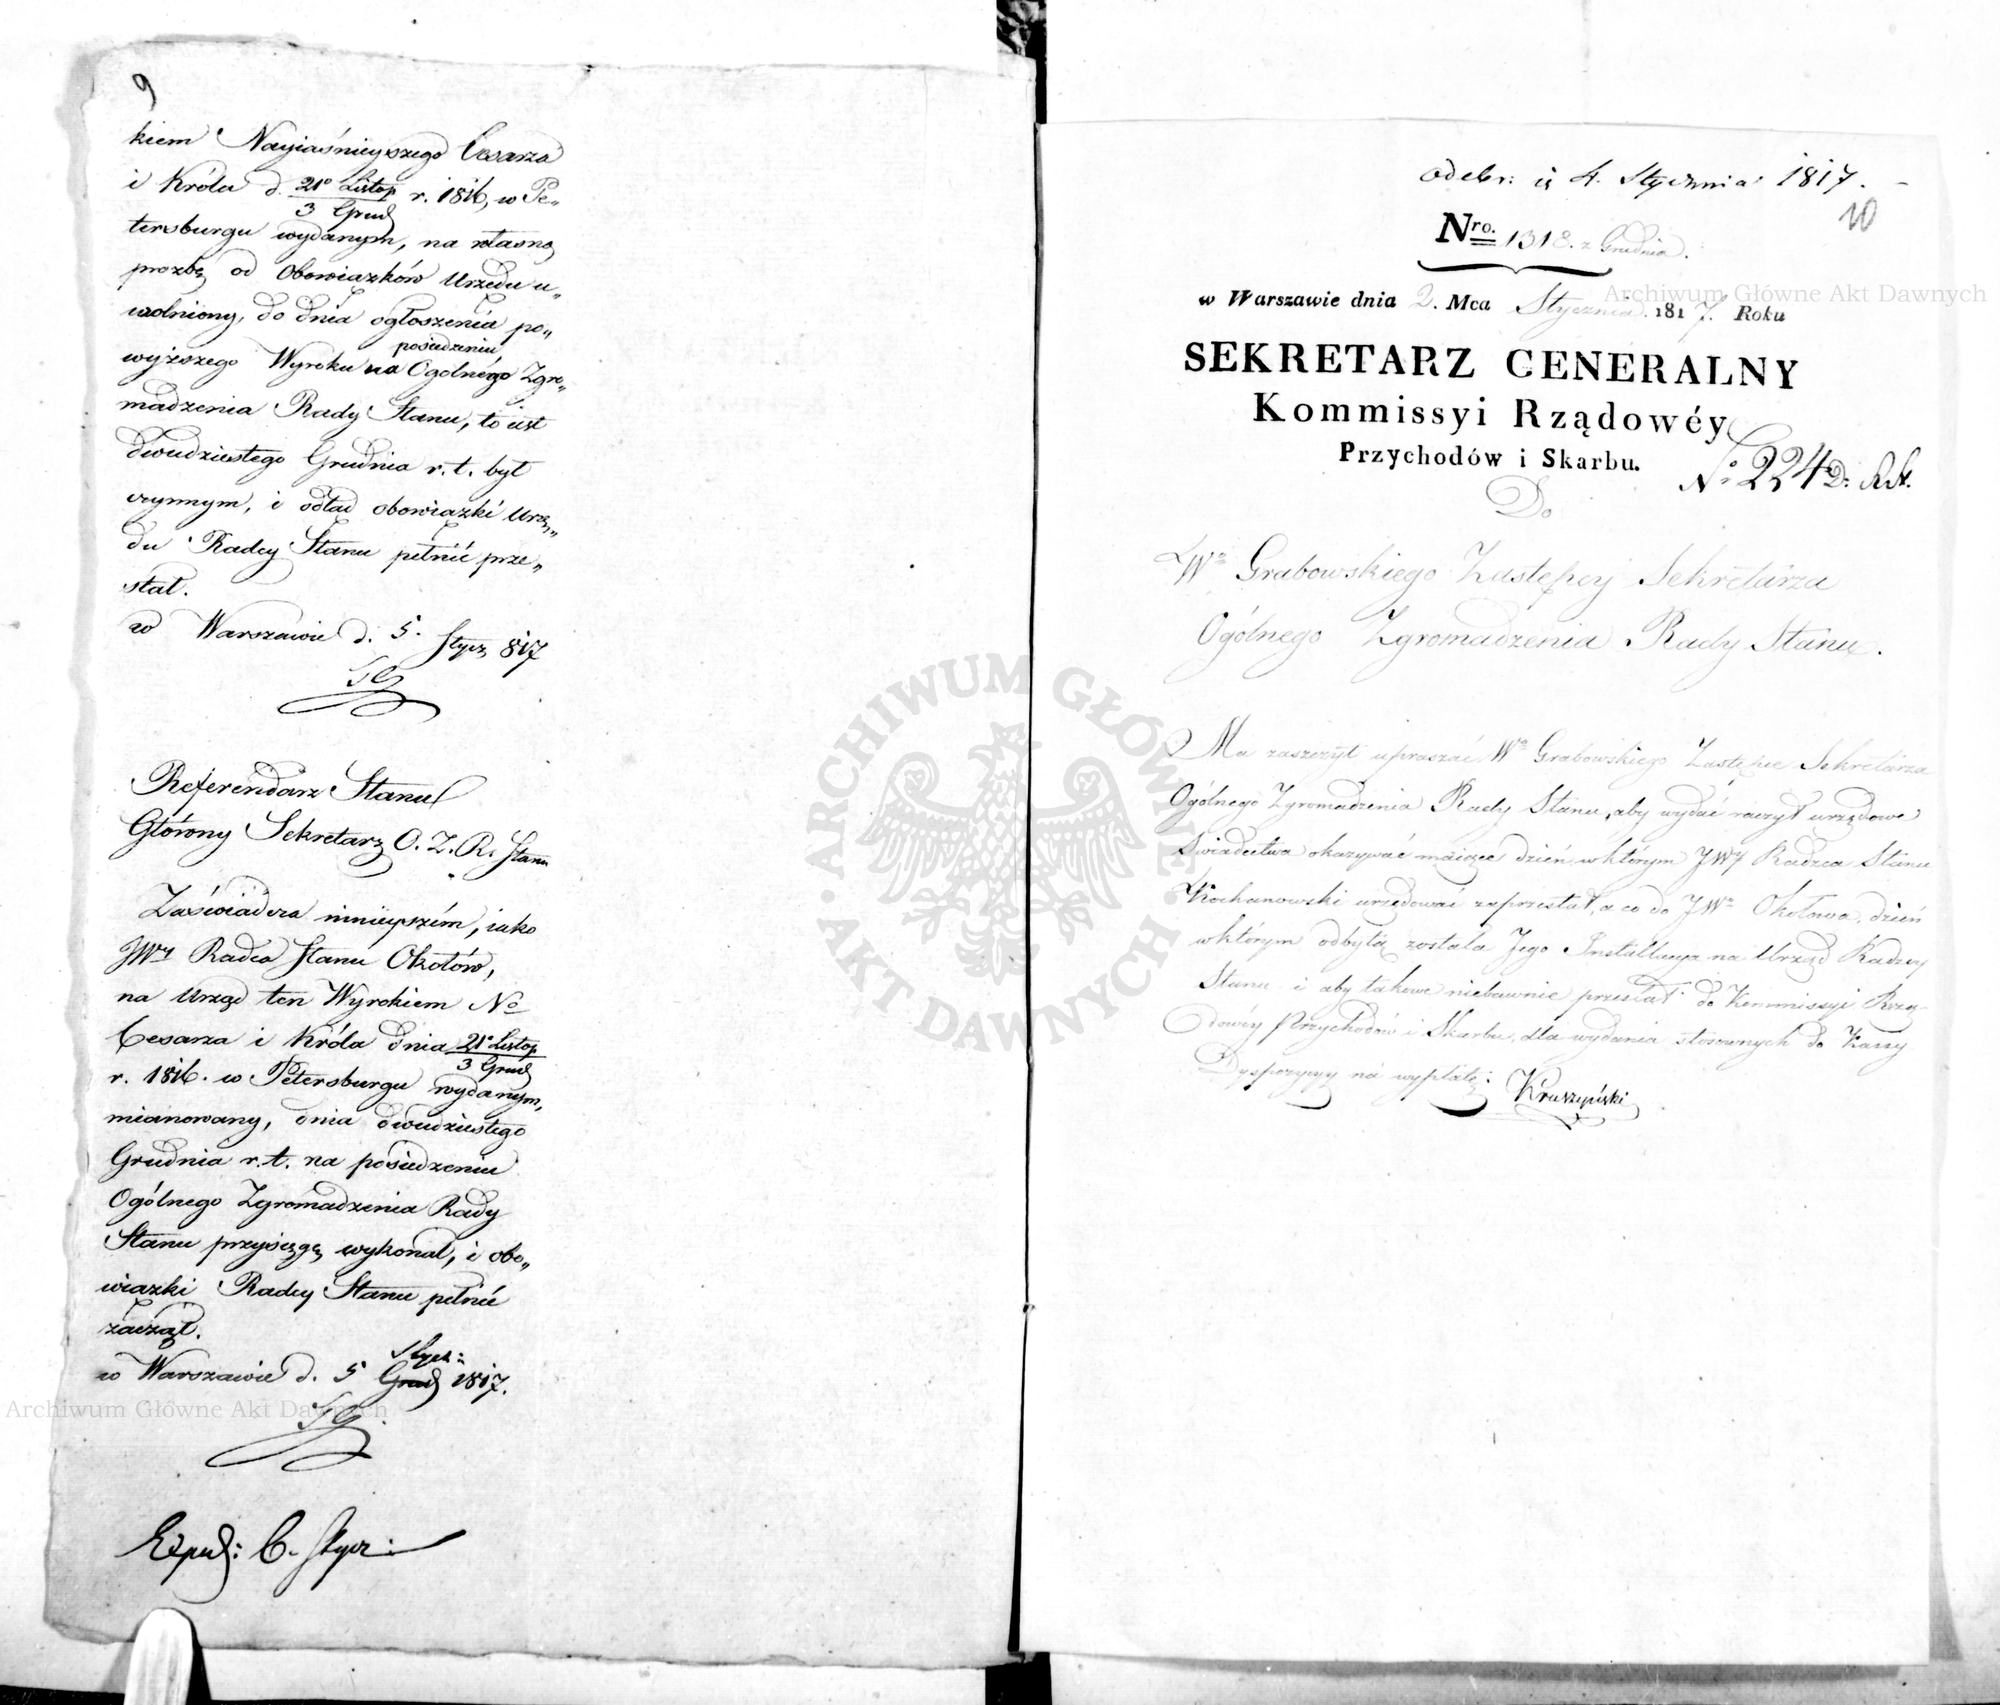 9
kiem Nayiaśnieyszego Cesarza
i Króla d. 21º Listop r. 1816, w Pe„
3 Grud
tersburgu wydanym, na własną
prozbę od Obowiązków Urzędu u„
wolniony, do dnia ogłoszenia po„
posiedzeniu
wyższego Wyroku na Ogolnego Zgro„
madzenia Rady Stanu, to iest
dwudziestego Grudnia r. t. był
czynnym, i odtąd obowiązki Urzę„
du Radcy Stanu pełnić prze„
stał.
w Warszawie d. 5. Stycz 817
Referendarz Stanu
Główny Sekretarz O. Z. R. Stanu
Zaświadcza ninieyszém, iako
JWy Radca Stanu Okołów,
na Urząd ten Wyrokiem No
Cesarza i Króla dnia 21º Listop
3 Grud
r. 1816. w Petersburgu wydanym,
mianowany, dnia dwudziestego
Grudnia r. t. na posiedzeniu
Ogólnego Zgromadzenia Rady
Stanu przysięgę wykonał, i obo„
wiązki Radcy Stanu pełnić
zaczął.
Stycz:
w Warszawie d. 5 Grud 1817.
Exped: 6. Stycz:
odebr: is 4. Stycznia 1817.
10
Nro. 1318. z Grudnia.
w Warszawie dnia 2. Mca Stycznia. 1817. Roku
SEKRETARZ GENERALNY
Kommissyi Rządowéy
Przychodów i Skarbu.
No 224 D: R.S.
Do
Wo Grabowskiego Zastępcy Sekretarza
Ogólnego Zgromadzenia Rady Stanu.
Ma zaszczyt upraszać Wo Grabowskiego Zastępcę Sekretarza
Ogólnego Zgromadzenia Rady Stanu, aby wydać raczył urzędowe
Swiadectwa okazywać maiące dzień w którym JWy Radzca Stanu
Kochanowski urzędować zaprzestał, a co do JWo Okołowa, dzień
w którym odbytą została Jego Installacya na Urząd Radzcy
Stanu i aby takowe niebawnie przesłał do Kommissyi Rzą-
dowéy Przychodów i Skarbu, dla wydania stosownych do Kassy
Dyspozycyy na wypłatę.
Kruszyński
Archiwum Główne Akt Dawnych
Archiwum Główne Akt Dawnych
ARCHIWUM GŁÓWNE AKT DAWNYCH